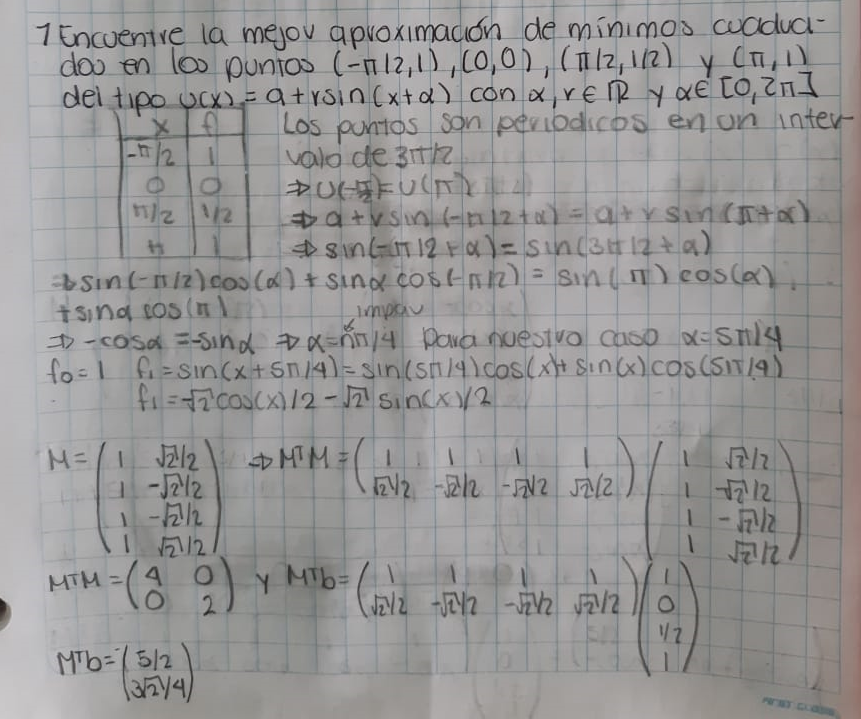 1 Encuentre la mejor aproximación de mínimos cuadra-
dos en los puntos (-π/2,1), (0,0), (π/2,1/2) y (π,1)
del tipo u(x) = a+rsin(x+α) con α,r∈ℝ y α∈[0,2π]
x f Los puntos son periódicos en un inter-
-π/2 1 valo de 3π/2
0 0 ⇒ U(-π/2)=U(π)
π/2 1/2 ⇒ a+rsin(-π/2+α) = a+rsin(π+α)
π 1 ⇒ sin(-π/2+α) = sin(3π/2+α)
⇒ sin(-π/2)cos(α) + sinα cos(-π/2) = sin(π)cos(α)
+ sinα cos(π) impar
⇒ -cosα = -sinα ⇒ α=nπ/4 para nuestro caso α=5π/4
f₀=1 f₁=sin(x+5π/4)=sin(5π/4)cos(x)+sin(x)cos(5π/4)
f₁=-√2cos(x)/2-√2 sin(x)/2
M = (1 √2/2 ⇒ MᵀM = (1 1 1 1 (1 √2/2
1 -√2/2 √2/2 -√2/2 -√2/2 √2/2) 1 -√2/2
1 -√2/2 1 -√2/2
1 √2/2) 1 √2/2)
MᵀM = (4 0 y Mᵀb = (1 1 1 1 (1
0 2) √2/2 -√2/2 -√2/2 √2/2) 0
1/2
1)
Mᵀb = (5/2
3√2/4)